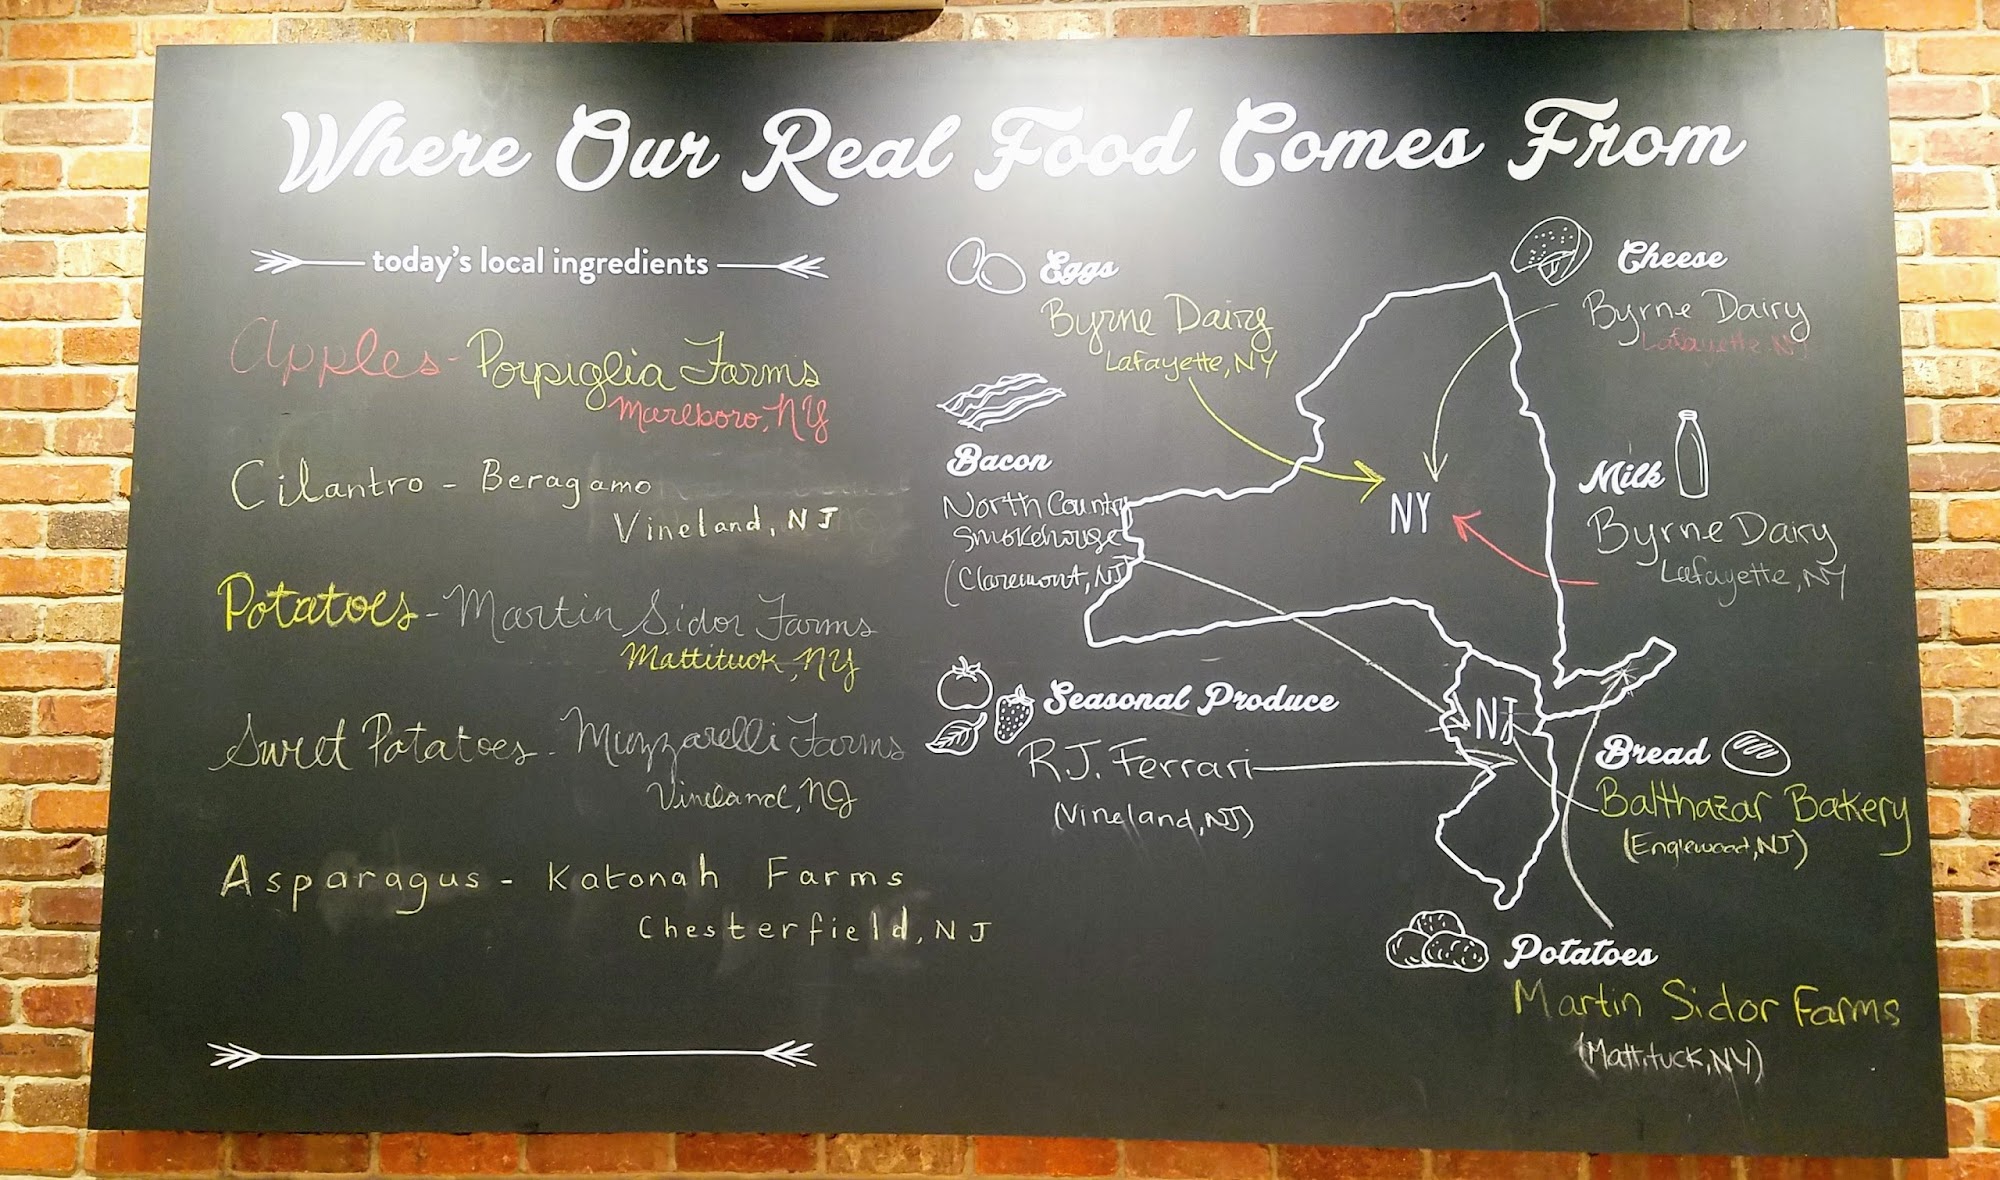 Where Our Real Food Comes From
today's local ingredients
Apples - Porpiglia Farms
Marlboro, NY
Cilantro - Beragamo
Vineland, NJ
Potatoes - Martin Sidor Farms
Mattituck, NY
Sweet Potatoes - Muzzarelli Farms
Vineland, NJ
Asparagus - Katonah Farms
Chesterfield, NJ
Eggs
Byrne Dairy
Lafayette, NY
Bacon
North Country
Smokehouse
(Claremont, NJ)
Seasonal Produce
R.J. Ferrari
(Vineland, NJ)
NY
NJ
Cheese
Byrne Dairy
Lafayette, NJ
Milk
Byrne Dairy
Lafayette, NY
Bread
Balthazar Bakery
(Englewood, NJ)
Potatoes
Martin Sidor Farms
(Mattituck, NY)